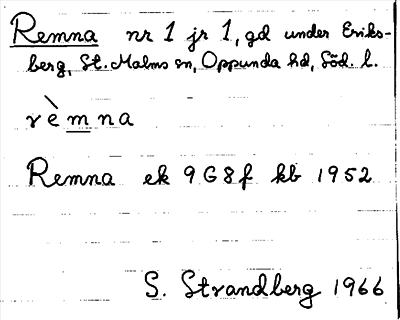 Remna nr 1 jr 1, gd under Eriks-
berg, St. Malms sn, Oppunda hd, Söd. l.
rèmna
Remna ek 9G8f kb 1952
S. Strandberg 1966